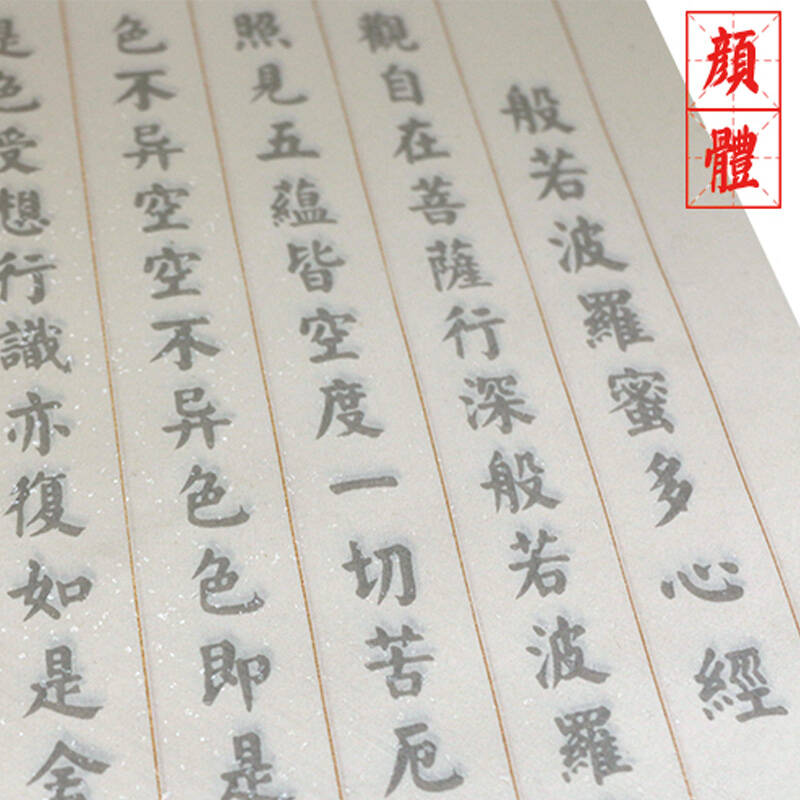 顏體
般若波羅蜜多心經
觀自在菩薩行深般若波羅
照見五蘊皆空度一切苦厄
色不异空空不异色色即是
是色受想行識亦復如是